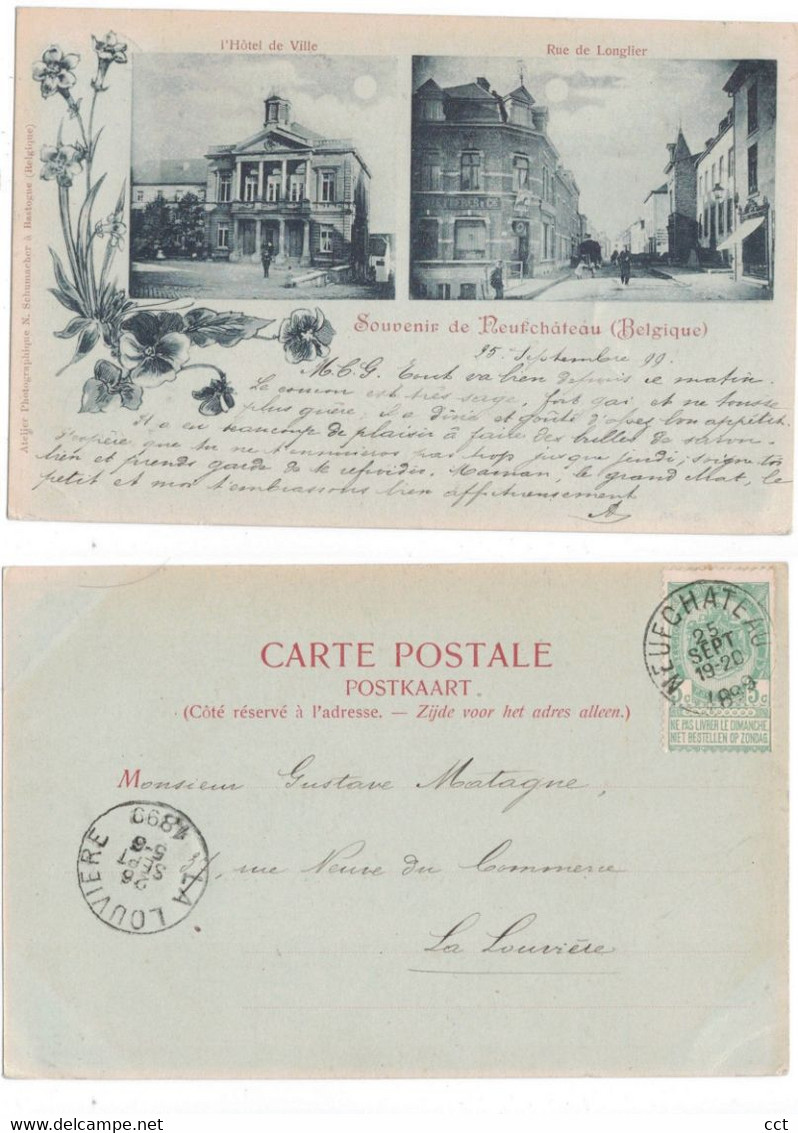 l'Hôtel de Ville
Rue de Longlier
Atelier Photographique N. Schumacher à Bastogne (Belgique)
Souvenir de Neufchâteau (Belgique)
25 Septembre 99.
M.C.G. Tout va bien depuis ce matin.
Le est très sage, fort gai et ne tousse
plus guère; il a diné et goûté d'assez bon appétit.
Il a eu beaucoup de plaisir à faire des bulles de savon.
J'espère que tu ne t'ennuieras pas trop jusque jeudi; soigne-toi
bien et prends garde de te refroidir. Maman, le grand Mat, le
petit et moi t'embrassons bien affectueusement
A
CARTE POSTALE
POSTKAART
(Côté réservé à l'adresse. — Zijde voor het adres alleen.)
NEUFCHATEAU
25
SEPT
19-20
1899
5c 5c
NE PAS LIVRER LE DIMANCHE
NIET BESTELLEN OP ZONDAG
Monsieur Gustave Matagne,
rue Neuve du Commerce
La Louvière
LA LOUVIERE
26
SEPT
5-6
1899
cct